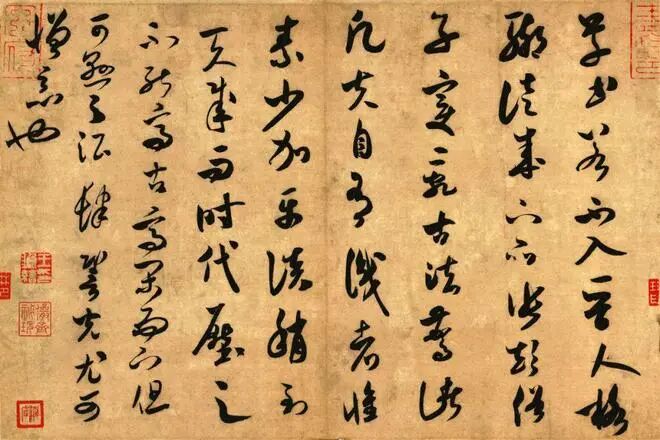 草書若不入晉人格
聊徒成下品張顛俗
子變亂古法驚諸
凡夫自有識者懷
素少加平淡稍到
天成而時代壓之
不能高古高閑而下但
可懸之酒肆辯光尤可
憎惡也